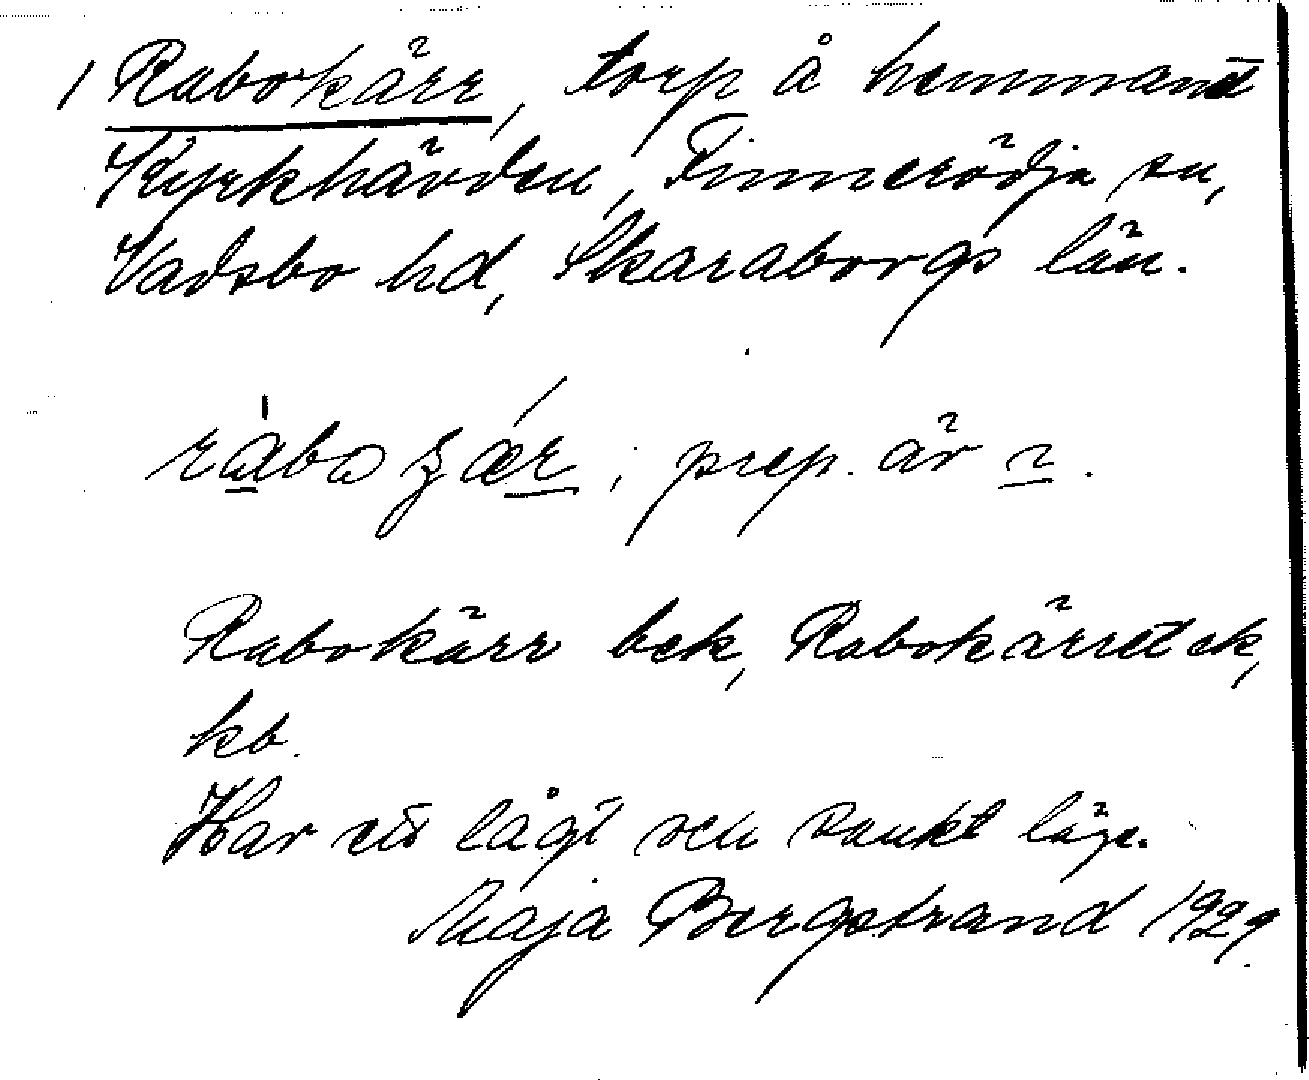 1 Rabokärr, torp å hemmanet
Kyrkhävden, Finnerödja sn,
Vadsbo hd, Skaraborgs län.
prep. är
Rabokärr bek, Rabokärret ek,
kb.
Har ett lågt och sankt läge.
Maja Bergstrand 1929.